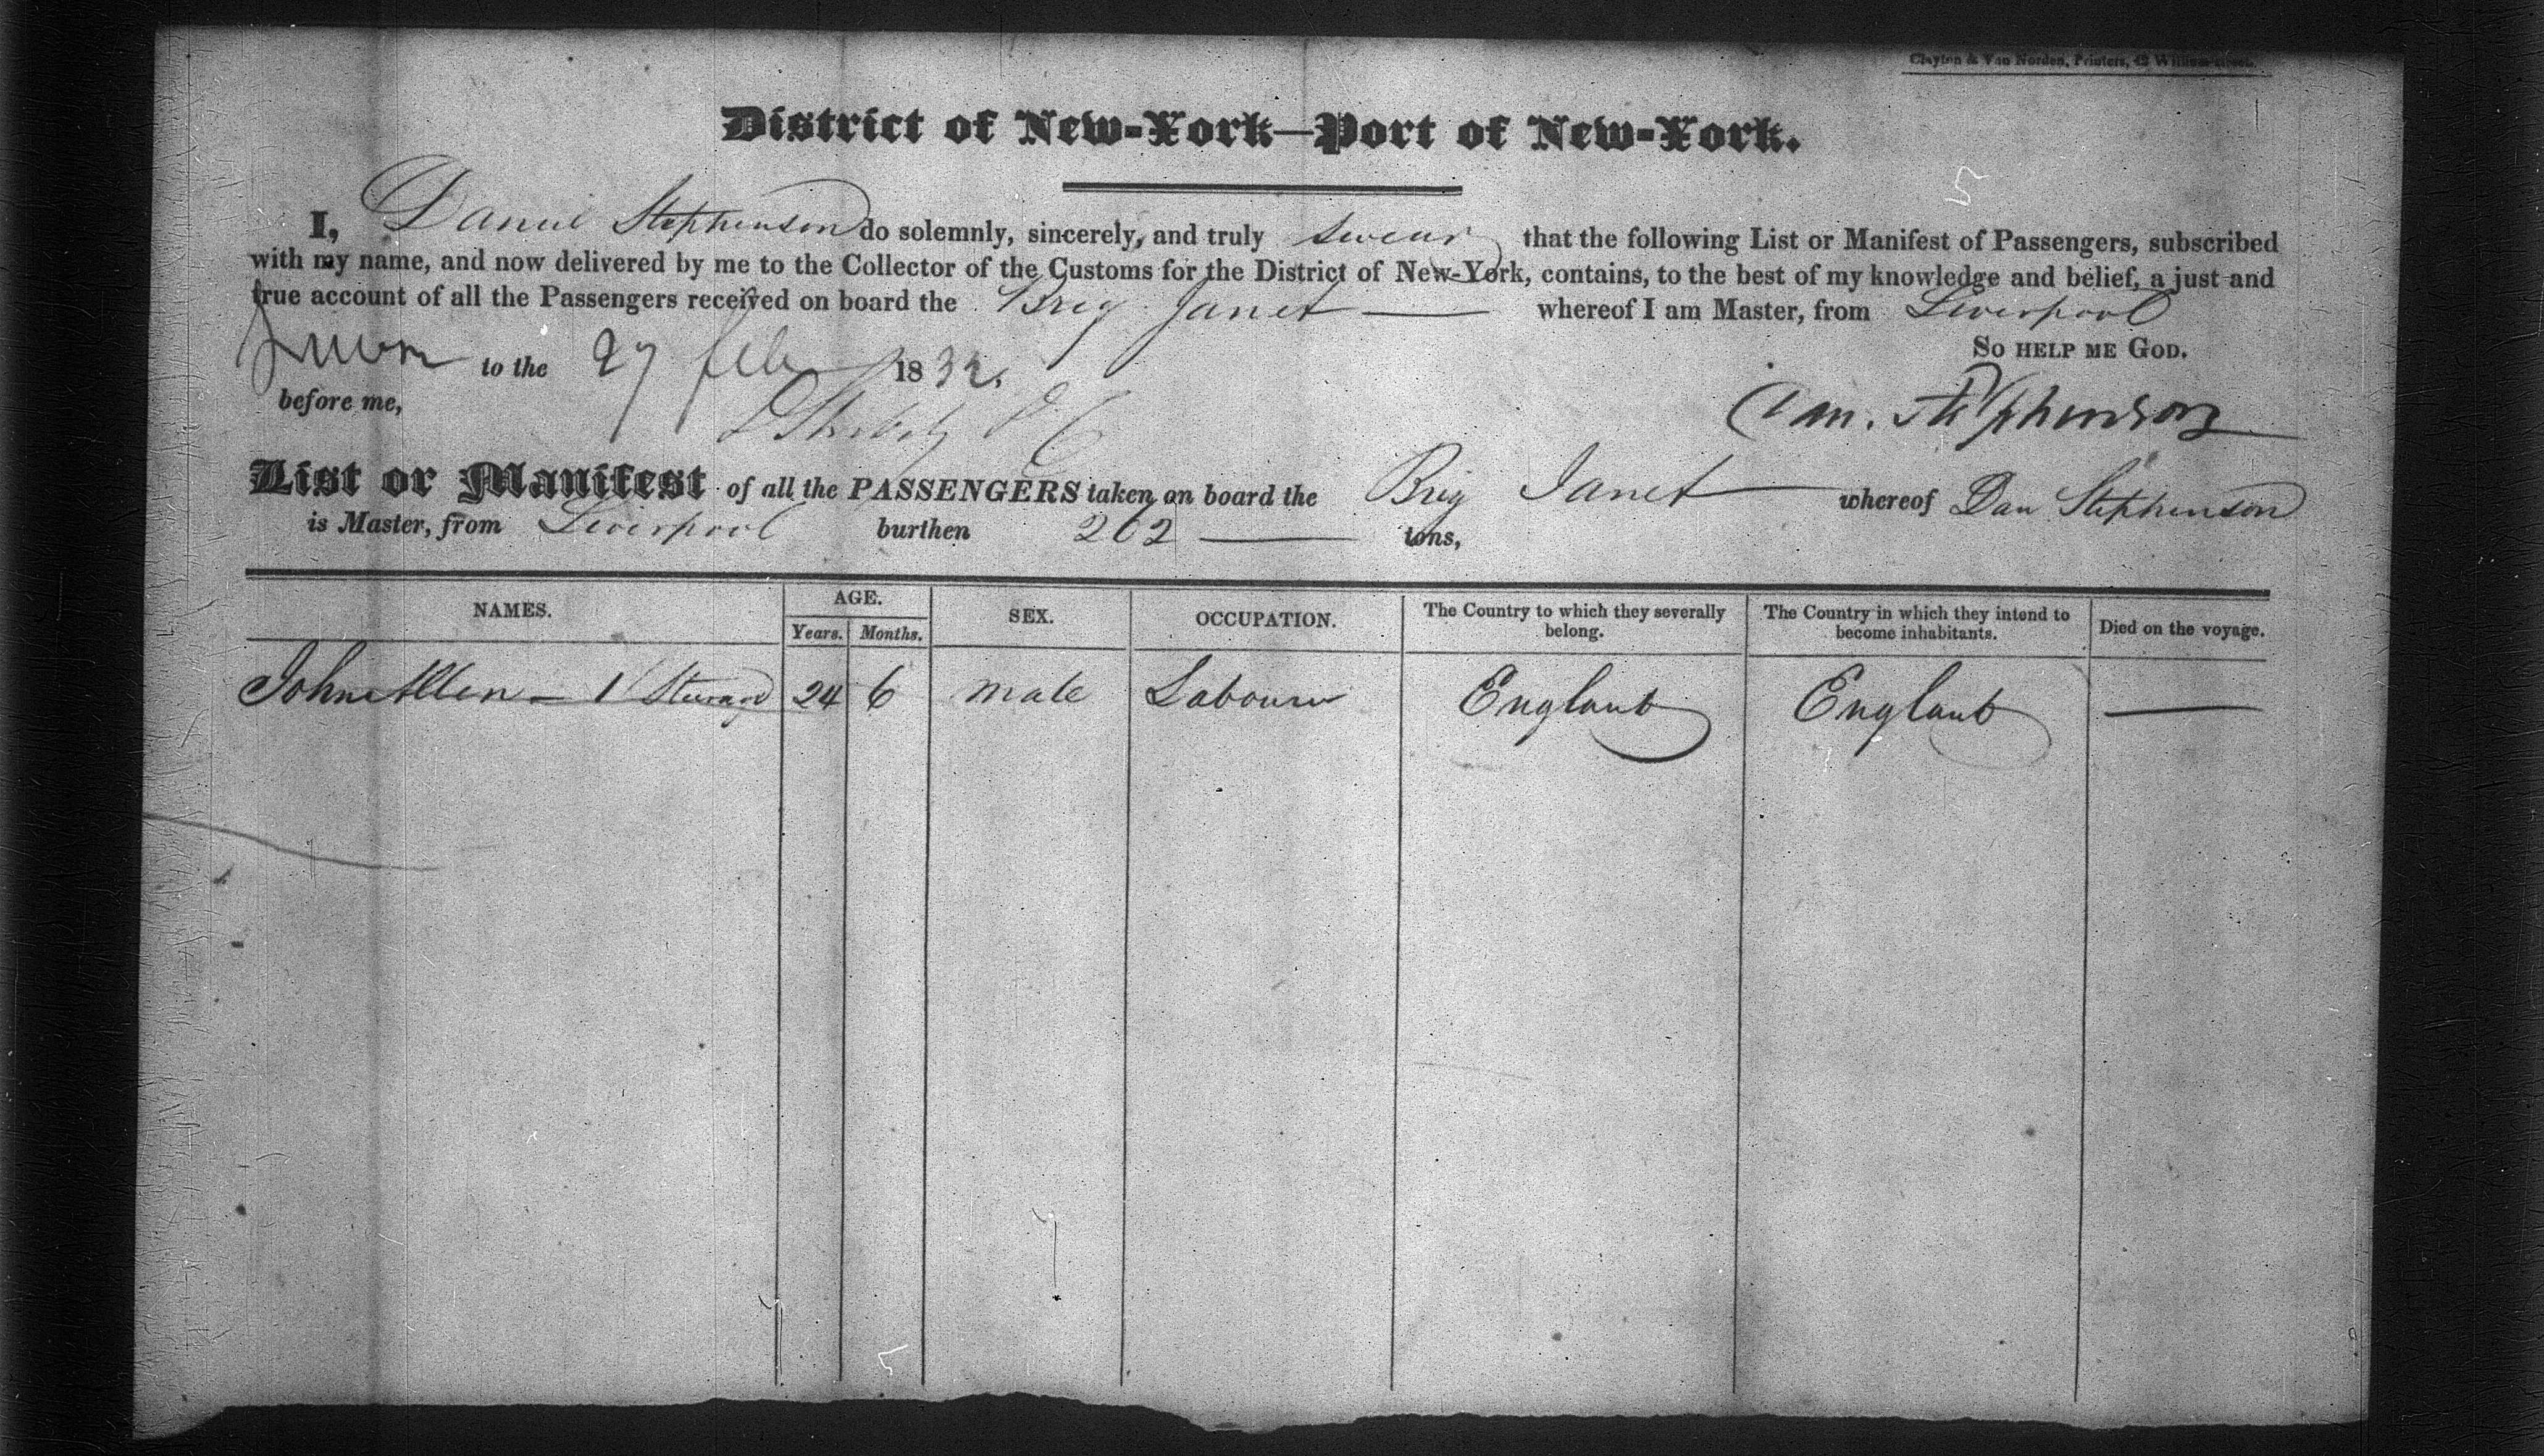 Clayton & Van Norden, Printers, 42 William-street.
District of New-York—Port of New-York.
I, Daniel Stephenson do solemnly, sincerely, and truly swear that the following List or Manifest of Passengers, subscribed
with my name, and now delivered by me to the Collector of the Customs for the District of New-York, contains, to the best of my knowledge and belief, a just and
true account of all the Passengers received on board the Brig Janet — whereof I am Master, from Liverpool
SO HELP ME GOD.
Sworn to the 27 feb 1832.
before me,
Dan. Stephenson
List or Manifest of all the PASSENGERS taken on board the Brig Janet — whereof Dan Stephenson
is Master, from Liverpool burthen 262 — tons,
NAMES. AGE. SEX. OCCUPATION. The Country to which they severally belong. The Country in which they intend to become inhabitants. Died on the voyage.
Years. Months.
John Allen — 1 Steerage 24 6 male Labourer England England —